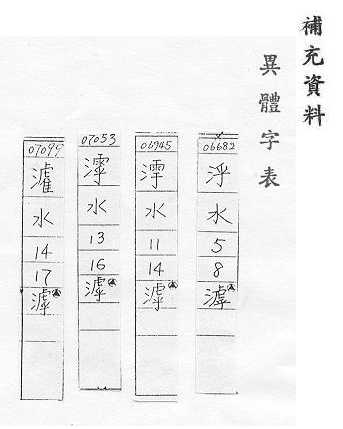 補充資料
異體字表
06682
泘
水
5
8
滹
06945
水
11
14
滹
07053
水
13
16
滹
07099
水
14
17
滹